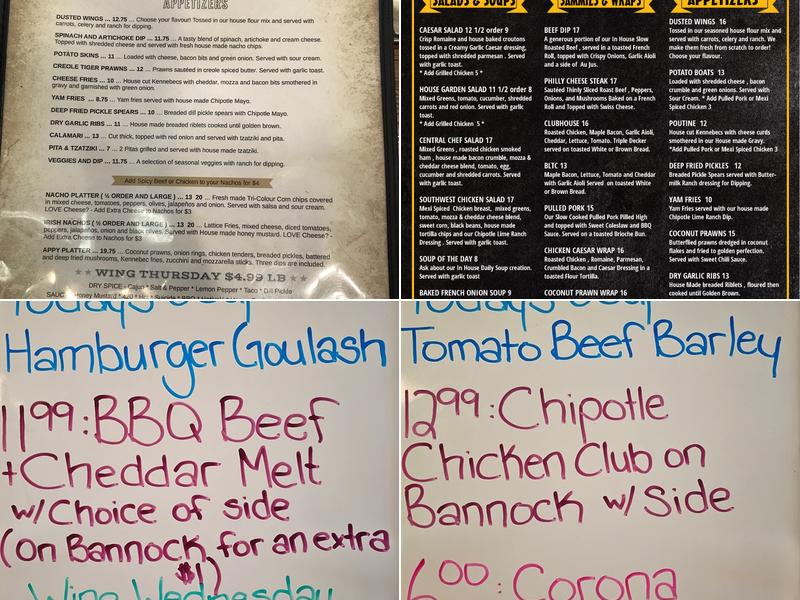 APPETIZERS
DUSTED WINGS ... 12.75 ... Choose your flavour! Tossed in our house flour mix and served with
carrots, celery and ranch for dipping.
SPINACH AND ARTICHOKE DIP ... 11.75 ... A tasty blend of spinach, artichoke and cream cheese.
Topped with shredded cheese and served with fresh house made nacho chips.
POTATO SKINS ... 11 ... Loaded with cheese, bacon bits and green onion. Served with sour cream.
CREOLE TIGER PRAWNS ... 12 ... Prawns sautéed in creole spiced butter. Served with garlic toast.
CHEESE FRIES ... 10 ... House cut Kennebecs with cheddar, mozza and edam cheese smothered in
gravy and garnished with green onion.
YAM FRIES ... 8.75 ... Yam fries served with house made Chipotle Mayo.
DEEP FRIED PICKLE SPEARS ... 10 ... Breaded dill pickle spears with Chipotle Mayo.
DRY GARLIC RIBS ... 11 ... House made breaded riblets cooked until golden brown.
CALAMARI ... 13 ... Cut thick, topped with red onion and served with tzatziki and pita.
PITA & TZATZIKI ... 7 ... 2 Pitas grilled and served with house made tzatziki.
VEGGIES AND DIP ... 11.75 ... A selection of seasonal veggies with ranch for dipping.
Add Spicy Beef or Chicken to your Nachos for $4
NACHO PLATTER ( ½ ORDER AND LARGE ) ... 13 20 ... Fresh made Tri-Colour Corn chips covered
in mixed cheese, tomatoes, peppers, olives, jalapeños and onion. Served with salsa and sour cream.
LOVE Cheese? - Add Extra Cheese to Nachos for $3
IRISH NACHOS ( ½ ORDER AND LARGE ) ... 13 20 ... Lattice Fries, mixed cheese, diced tomatoes,
peppers, jalapeños, onion and black olives. Served with House made honey mustard. LOVE Cheese? -
Add Extra Cheese to Nachos for $3
APPY PLATTER ... 19.75 ... Coconut prawns, onion rings, chicken tenders, breaded pickles, battered
and deep fried mushrooms, Kennebec fries, zucchini and mozzarella sticks. Three dips are included.
WING THURSDAY $4.99 LB
DRY SPICE - Cajun * Salt & Pepper * Lemon Pepper * Taco * Dill Pickle
SAUC Honey Mustard
SALADS & SOUPS
CAESAR SALAD 12 1/2 order 9
Crisp Romaine and house baked croutons
tossed in a Creamy Garlic Caesar dressing,
topped with shredded parmesan . Served
with garlic toast.
* Add Grilled Chicken 5 *
HOUSE GARDEN SALAD 11 1/2 order 8
Mixed Greens, tomato, cucumber, shredded
carrots and red onion. Served with garlic
toast.
* Add Grilled Chicken 5 *
CENTRAL CHEF SALAD 17
Mixed Greens , roasted chicken smoked
ham , house made bacon crumble, mozza &
cheddar cheese blend, tomato, egg,
cucumber and shredded carrots. Served
with garlic toast.
SOUTHWEST CHICKEN SALAD 17
Mexi Spiced Chicken breast, mixed greens,
tomato, mozza & cheddar cheese blend,
sweet corn, black beans, house made
tortilla chips and our Chipotle Lime Ranch
Dressing . Served with garlic toast.
SOUP OF THE DAY 8
Ask about our In House Daily Soup creation.
Served with garlic toast
BAKED FRENCH ONION SOUP 9
SAMMIES & WRAPS
BEEF DIP 17
A generous portion of our In House Slow
Roasted Beef , served in a toasted French
Roll, topped with Crispy Onions, Garlic Aioli
and a side of Au Jus.
PHILLY CHEESE STEAK 17
Sautéed Thinly Sliced Roast Beef , Peppers,
Onions, and Mushrooms Baked on a French
Roll and Topped with Swiss Cheese.
CLUBHOUSE 16
Roasted Chicken, Maple Bacon, Garlic Aioli,
Cheddar, Lettuce, Tomato. Triple Decker
served on toasted White or Brown Bread.
BLTC 13
Maple Bacon, Lettuce, Tomato and Cheddar
with Garlic Aioli Served on toasted White
or Brown Bread.
PULLED PORK 15
Our Slow Cooked Pulled Pork Pilled High
and topped with Sweet Coleslaw and BBQ
Sauce. Served on a toasted Brioche Bun.
CHICKEN CAESAR WRAP 16
Roasted Chicken , Romaine, Parmesan,
Crumbled Bacon and Caesar Dressing in a
Toasted Flour Tortilla.
COCONUT PRAWN WRAP 16
APPETIZERS
DUSTED WINGS 16
Tossed in our seasoned house flour mix and
served with carrots, celery and ranch. We
make them fresh from scratch to order!
Choose your flavour.
POTATO BOATS 13
Loaded with shredded cheese , bacon
crumble and green onions. Served with
Sour Cream. * Add Pulled Pork or Mexi
Spiced Chicken 3
POUTINE 12
House cut Kennebecs with cheese curds
smothered in our House made Gravy.
*Add Pulled Pork or Mexi Spiced Chicken 3
DEEP FRIED PICKLES 12
Breaded Pickle Spears served with Butter-
milk Ranch dressing for Dipping.
YAM FRIES 10
Yam Fries served with our house made
Chipotle Lime Ranch Dip.
COCONUT PRAWNS 15
Butterflied prawns dredged in coconut
flakes and fried to golden perfection.
Served with Sweet Chili Sauce.
DRY GARLIC RIBS 13
House Made breaded Riblets , floured then
cooked until Golden Brown.
Todays Soup
Hamburger Goulash
11.99: BBQ Beef
+ Cheddar Melt
w/ Choice of side
(on Bannock for an extra
$1)
Wing Wednesday
Todays Soup
Tomato Beef Barley
12.99: Chipotle
Chicken Club on
Bannock w/ Side
6.00: Corona